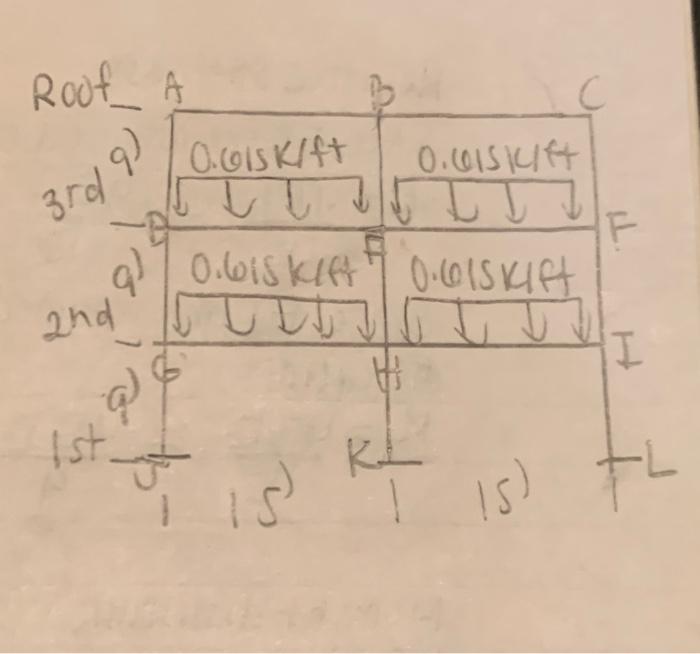 Roof A B C
9)
0.615K/ft 0.615K/ft
3rd D E F
9)
0.615K/ft 0.615K/ft
2nd G H I
9)
1st J K L
15) 15)